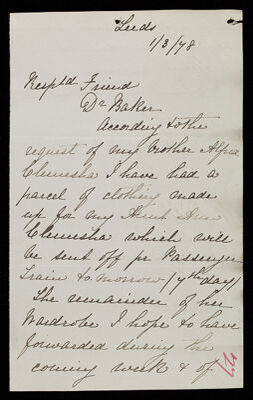 Leeds
1/3/78
Resptd Friend
Dr Baker
According to the
request of my brother Alfred
Clemesha I have had a
parcel of clothing made
up for my Aunt Ann
Clemesha which will
be sent off pr Passenger
Train to-morrow (7th day)
The remainder of her
Wardrobe I hope to have
forwarded during the
coming week & of